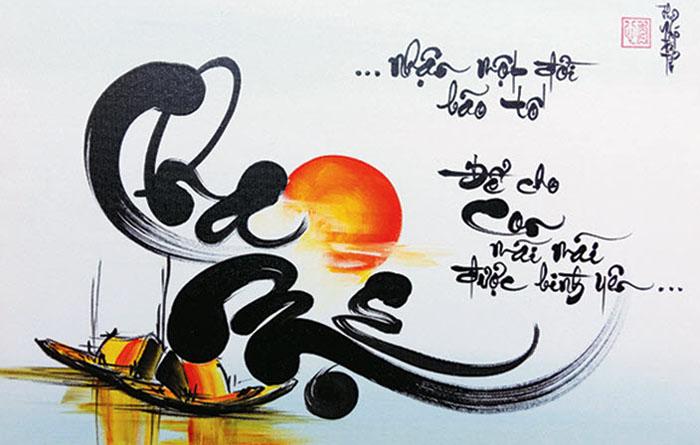 Cha
Mẹ
...nhận một đời
bão tố
Để cho
Con
mãi mãi
được bình yên...